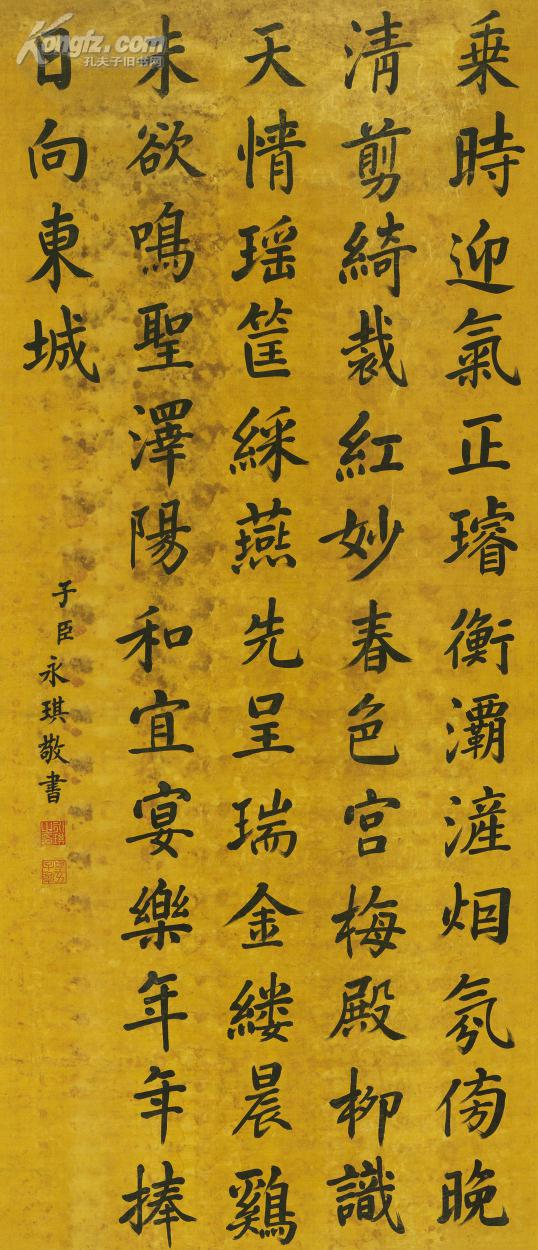 乗時迎氣正璿衡灞滻烟氛傍晚
清剪綺裁紅妙春色宮梅殿柳識
天情瑶筐綵燕先呈瑞金縷晨鷄
未欲鳴聖澤陽和宜宴樂年年捧
日向東城
子臣永琪敬書
Kongfz.com
孔夫子旧书网